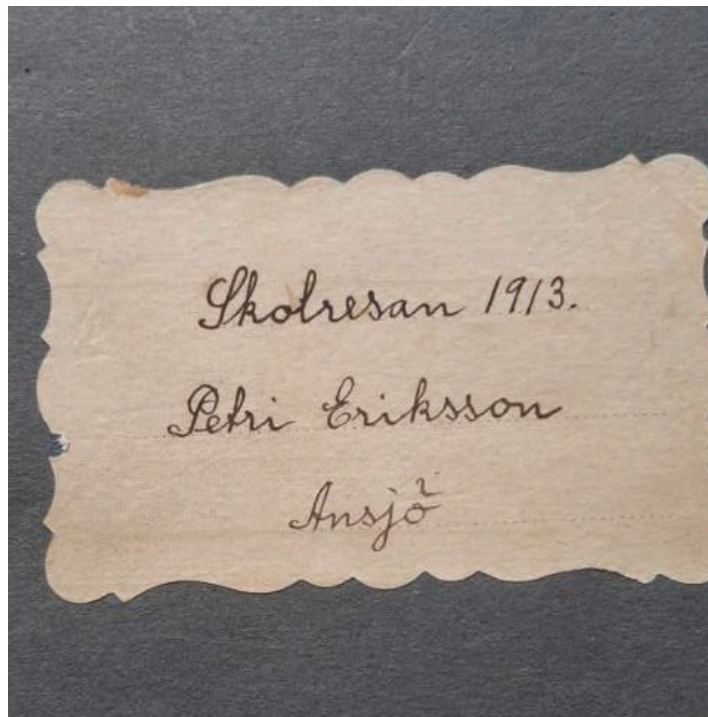 Skolresan 1913.
Petri Eriksson
Ansjö